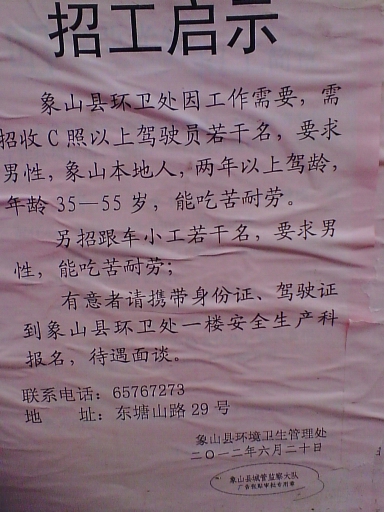 招工启示
象山县环卫处因工作需要，需
招收C照以上驾驶员若干名，要求
男性，象山本地人，两年以上驾龄，
年龄35—55岁，能吃苦耐劳。
另招跟车小工若干名，要求男
性，能吃苦耐劳；
有意者请携带身份证、驾驶证
到象山县环卫处一楼安全生产科
报名，待遇面谈。
联系电话：65767273
地　　址：东塘山路29号
象山县环境卫生管理处
二〇一二年六月二十日
象山县城管监察大队
广告张贴审批专用章